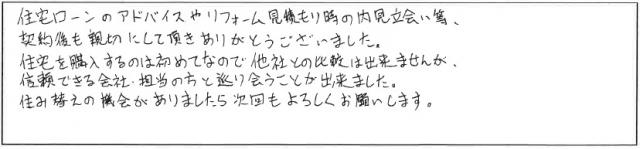 住宅ローンのアドバイスやリフォーム見積もり時の内見立会い等、
契約後も親切にして頂きありがとうございました。
住宅を購入するのは初めてなので他社との比較は出来ませんが、
信頼できる会社・担当の方と巡り会うことが出来ました。
住み替えの機会がありましたら次回もよろしくお願いします。